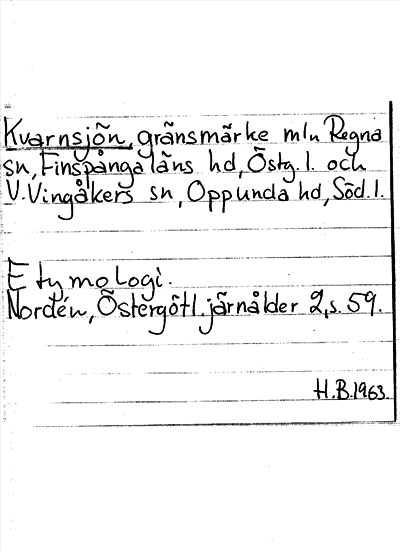 Kvarnsjön, gränsmärke mln Regna
sn, Finspånga läns hd, Östg.l. och
V. Vingåkers sn, Oppunda hd, Söd.l.
Etymologi.
Nordén, Östergötl. järnålder 2, s. 59.
H.B. 1963.